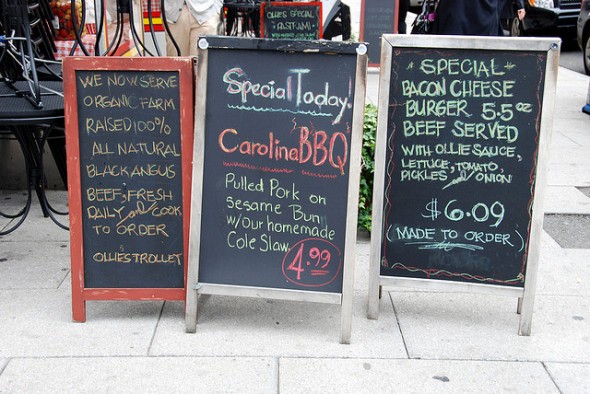 OLLIES SPECIAL
WE NOW SERVE
ORGANIC FARM
RAISED 100%
ALL NATURAL
BLACK ANGUS
BEEF, FRESH
DAILY and COOK
TO ORDER
OLLIES TROLLEY
Special Today!
Carolina BBQ
Pulled Pork on
sesame Bun
w/our homemade
Cole Slaw
4.99
SPECIAL
BACON CHEESE
BURGER 5.5oz
BEEF SERVED
WITH OLLIE SAUCE,
LETTUCE, TOMATO,
PICKLES and ONION
$6.09
(MADE TO ORDER)